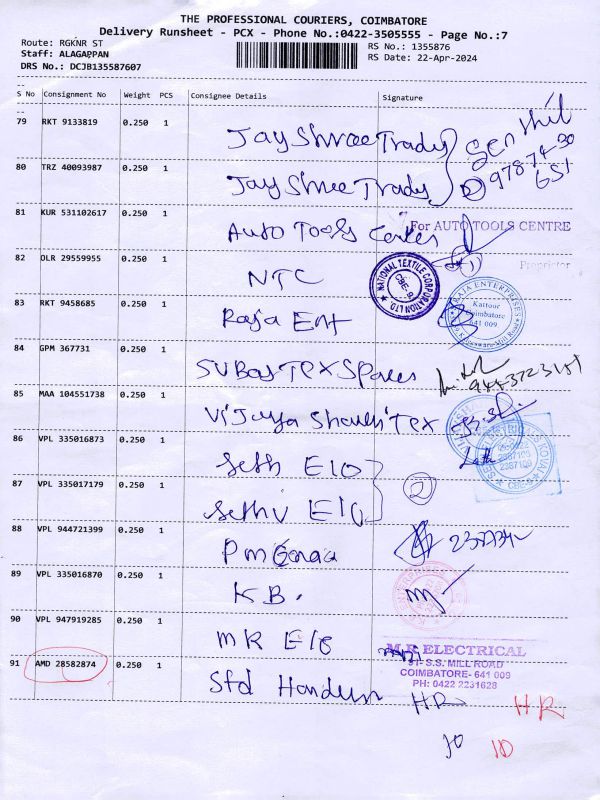 THE PROFESSIONAL COURIERS, COIMBATORE
Delivery Runsheet - PCX - Phone No.:0422-3505555 - Page No.:7
Route: RGKNR ST
Staff: ALAGAPPAN
DRS No.: DCJB135587607
RS No.: 1355876
RS Date: 22-Apr-2024
S No Consignment No Weight PCS Consignee Details Signature
79 RKT 9133819 0.250 1 Jay Shree Trady
80 TRZ 40093987 0.250 1 Jay Shree Trady
Senthil
97874-30
GST
81 KUR 531102617 0.250 1 Auto Tools Center
For AUTO TOOLS CENTRE
Proprietor
82 DLR 29559955 0.250 1 NTC
NATIONAL TEXTILE CORPORATION LTD.
CBE-9
83 RKT 9458685 0.250 1 Raja Ent
RAJA ENTERPRISES
Kattoor
Coimbatore
641 009
84 GPM 367731 0.250 1 SUBas Tex Spares
85 MAA 104551738 0.250 1 Vijaya Shanthi Tex
86 VPL 335016873 0.250 1 Seth E10
2387109
2387100
87 VPL 335017179 0.250 1 Sethu E10
2
88 VPL 944721399 0.250 1
89 VPL 335016870 0.250 1 K B.
90 VPL 947919285 0.250 1 MR E10
M.R. ELECTRICAL
91- S.S. MILL ROAD
COIMBATORE- 641 009
PH: 0422 2231628
91 AMD 28582874 0.250 1 Std Handum
HR HR
10 10